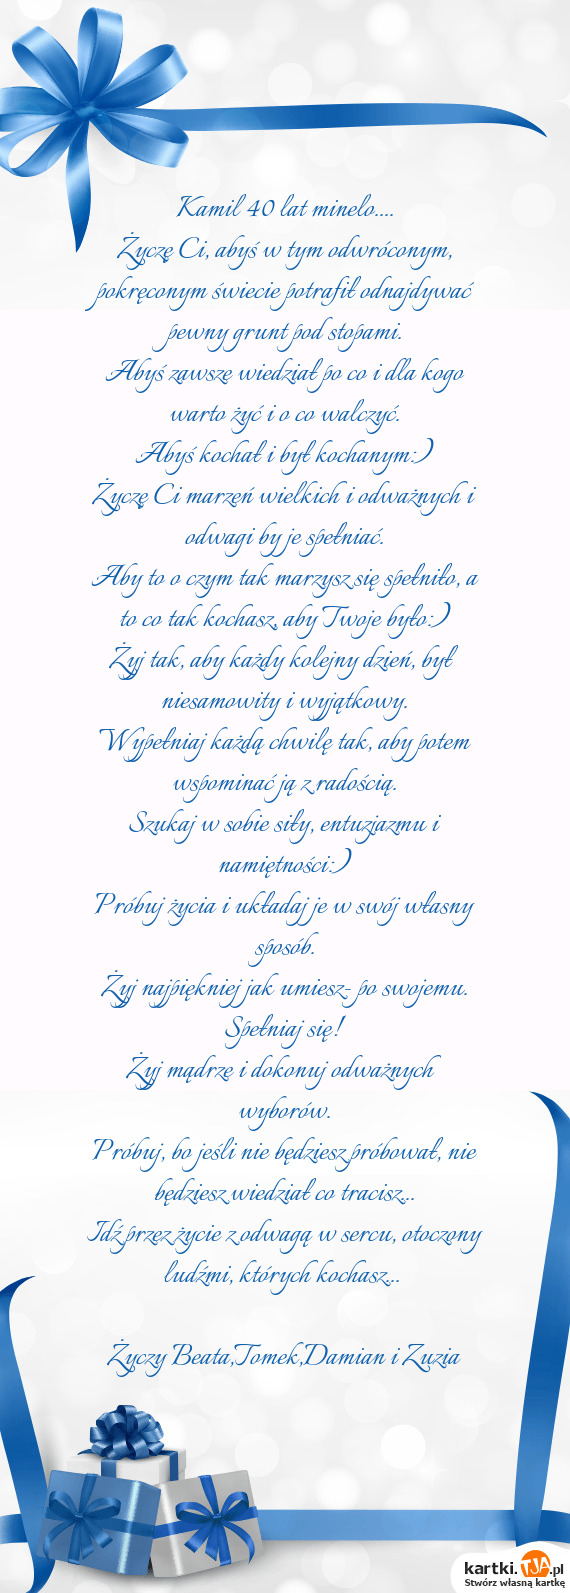 Kamil 40 lat minelo....
Życzę Ci, abyś w tym odwróconym,
pokręconym świecie potrafił odnajdywać
pewny grunt pod stopami.
Abyś zawsze wiedział po co i dla kogo
warto żyć i o co walczyć.
Abyś kochał i był kochanym:)
Życzę Ci marzeń wielkich i odważnych i
odwagi by je spełniać.
Aby to o czym tak marzysz się spełniło, a
to co tak kochasz, aby Twoje było:)
Żyj tak, aby każdy kolejny dzień, był
niesamowity i wyjątkowy.
Wypełniaj każdą chwilę tak, aby potem
wspominać ją z radością.
Szukaj w sobie siły, entuzjazmu i
namiętności:)
Próbuj życia i układaj je w swój własny
sposób.
Żyj najpiękniej jak umiesz- po swojemu.
Spełniaj się!
Żyj mądrze i dokonuj odważnych
wyborów.
Próbuj, bo jeśli nie będziesz próbował, nie
będziesz wiedział co tracisz...
Idź przez życie z odwagą w sercu, otoczony
ludźmi, których kochasz...
Życzy Beata,Tomek,Damian i Zuzia
kartki.TJA.pl
Stwórz własną kartkę